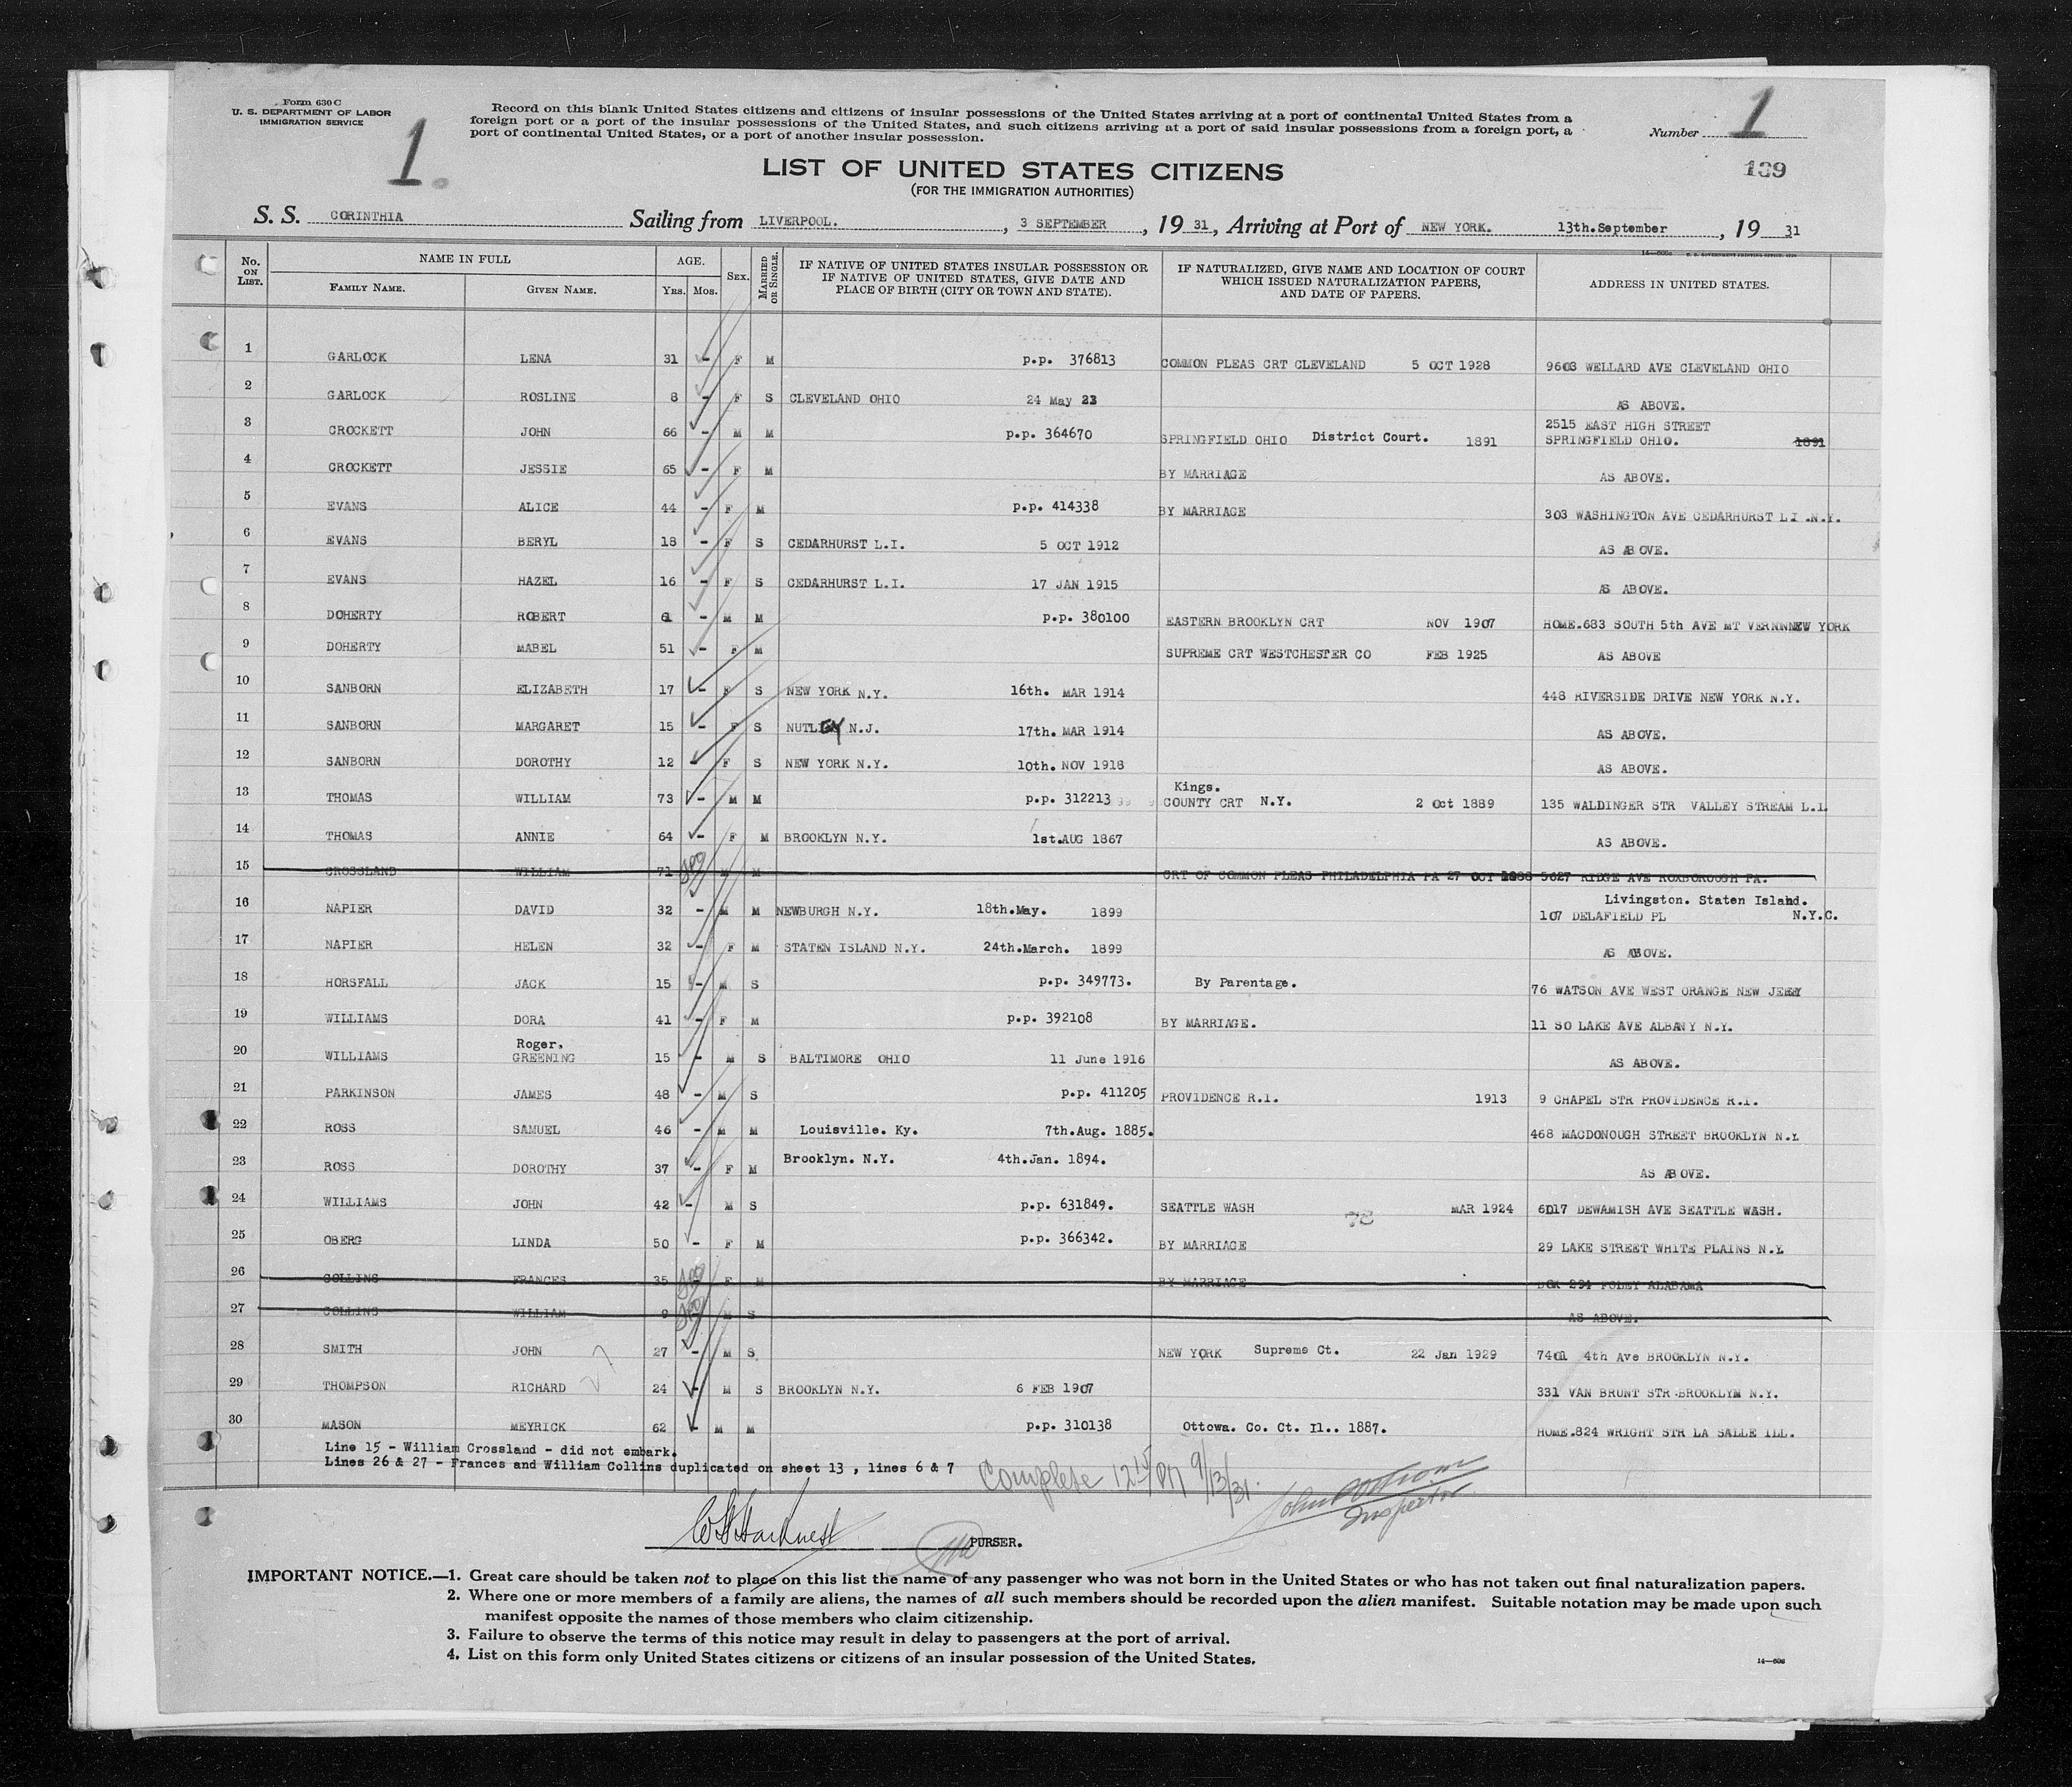 Form 630 C
U. S. DEPARTMENT OF LABOR
IMMIGRATION SERVICE
1.
Record on this blank United States citizens and citizens of insular possessions of the United States arriving at a port of continental United States from a
foreign port or a port of the insular possessions of the United States, and such citizens arriving at a port of said insular possessions from a foreign port, a
port of continental United States, or a port of another insular possession.
Number 1
LIST OF UNITED STATES CITIZENS
(FOR THE IMMIGRATION AUTHORITIES)
139
S. S. CORINTHIA Sailing from LIVERPOOL. , 3 SEPTEMBER , 19 31, Arriving at Port of NEW YORK. 13th.September , 19 31
No. ON LIST. NAME IN FULL FAMILY NAME. GIVEN NAME. AGE. YRS. MOS. SEX. MARRIED OR SINGLE. IF NATIVE OF UNITED STATES INSULAR POSSESSION OR IF NATIVE OF UNITED STATES, GIVE DATE AND PLACE OF BIRTH (CITY OR TOWN AND STATE). IF NATURALIZED, GIVE NAME AND LOCATION OF COURT WHICH ISSUED NATURALIZATION PAPERS, AND DATE OF PAPERS. ADDRESS IN UNITED STATES.
1 GARLOCK LENA 31 - F M p.p. 376813 COMMON PLEAS CRT CLEVELAND 5 OCT 1928 9603 WELLARD AVE CLEVELAND OHIO
2 GARLOCK ROSLINE 8 - F S CLEVELAND OHIO 24 May 23 AS ABOVE.
3 CROCKETT JOHN 66 - M M p.p. 364670 SPRINGFIELD OHIO District Court. 1891 2515 EAST HIGH STREET
SPRINGFIELD OHIO. 1891
4 CROCKETT JESSIE 65 - F M BY MARRIAGE AS ABOVE.
5 EVANS ALICE 44 - F M p.p. 414338 BY MARRIAGE 303 WASHINGTON AVE CEDARHURST L.I .N.Y.
6 EVANS BERYL 18 - F S CEDARHURST L.I. 5 OCT 1912 AS ABOVE.
7 EVANS HAZEL 16 - F S CEDARHURST L.I. 17 JAN 1915 AS ABOVE.
8 DOHERTY ROBERT 61 - M M p.p. 380100 EASTERN BROOKLYN CRT NOV 1907 HOME.683 SOUTH 5th AVE MT VERNNNEW YORK
9 DOHERTY MABEL 51 - F M SUPREME CRT WESTCHESTER CO FEB 1925 AS ABOVE
10 SANBORN ELIZABETH 17 - F S NEW YORK N.Y. 16th. MAR 1914 448 RIVERSIDE DRIVE NEW YORK N.Y.
11 SANBORN MARGARET 15 - F S NUTLEY N.J. 17th. MAR 1914 AS ABOVE.
12 SANBORN DOROTHY 12 - F S NEW YORK N.Y. 10th. NOV 1918 AS ABOVE.
13 THOMAS WILLIAM 73 - M M p.p. 312213 Kings.
COUNTY CRT N.Y. 2 Oct 1889 135 WALDINGER STR VALLEY STREAM L.I.
14 THOMAS ANNIE 64 - F M BROOKLYN N.Y. 1st.AUG 1867 AS ABOVE.
15 CROSSLAND WILLIAM 71 M M CRT OF COMMON PLEAS PHILADELPHIA PA 27 OCT 1888 5627 RIDGE AVE ROXBOROUGH PA.
16 NAPIER DAVID 32 - M M NEWBURGH N.Y. 18th.May. 1899 Livingston. Staten Island.
107 DELAFIELD PL N.Y.C.
17 NAPIER HELEN 32 - F M STATEN ISLAND N.Y. 24th.March. 1899 AS ABOVE.
18 HORSFALL JACK 15 - M S p.p. 349773. By Parentage. 76 WATSON AVE WEST ORANGE NEW JEREY
19 WILLIAMS DORA 41 - F M p.p. 392108 BY MARRIAGE. 11 SO LAKE AVE ALBANY N.Y.
20 WILLIAMS Roger.
GREENING 15 - M S BALTIMORE OHIO 11 June 1916 AS ABOVE.
21 PARKINSON JAMES 48 - M S p.p. 411205 PROVIDENCE R.I. 1913 9 CHAPEL STR PROVIDENCE R.I.
22 ROSS SAMUEL 46 - M M Louisville. Ky. 7th.Aug. 1885. 468 MACDONOUGH STREET BROOKLYN N.Y
23 ROSS DOROTHY 37 - F M Brooklyn. N.Y. 4th.Jan. 1894. AS ABOVE.
24 WILLIAMS JOHN 42 - M S p.p. 631849. SEATTLE WASH MAR 1924 6017 DEWAMISH AVE SEATTLE WASH.
25 OBERG LINDA 50 - F M p.p. 366342. BY MARRIAGE 29 LAKE STREET WHITE PLAINS N.Y
26 COLLINS FRANCES 35 - F M BY MARRIAGE BOX 294 FOLEY ALABAMA
27 COLLINS WILLIAM 9 - M S AS ABOVE.
28 SMITH JOHN 27 - M S NEW YORK Supreme Ct. 22 Jan 1929 7401 4th Ave BROOKLYN N.Y.
29 THOMPSON RICHARD 24 - M S BROOKLYN N.Y. 6 FEB 1907 331 VAN BRUNT STR BROOKLYN N.Y.
30 MASON MEYRICK 62 - M M p.p. 310138 Ottowa. Co. Ct. Il.. 1887. HOME.824 WRIGHT STR LA SALLE ILL.
Line 15 - William Crossland - did not embark.
Lines 26 & 27 - Frances and William Collins duplicated on sheet 13 , lines 6 & 7
Complete 12 15 PM 9/13/31.
Inspector
PURSER.
IMPORTANT NOTICE.—1. Great care should be taken not to place on this list the name of any passenger who was not born in the United States or who has not taken out final naturalization papers.
2. Where one or more members of a family are aliens, the names of all such members should be recorded upon the alien manifest. Suitable notation may be made upon such
manifest opposite the names of those members who claim citizenship.
3. Failure to observe the terms of this notice may result in delay to passengers at the port of arrival.
4. List on this form only United States citizens or citizens of an insular possession of the United States.